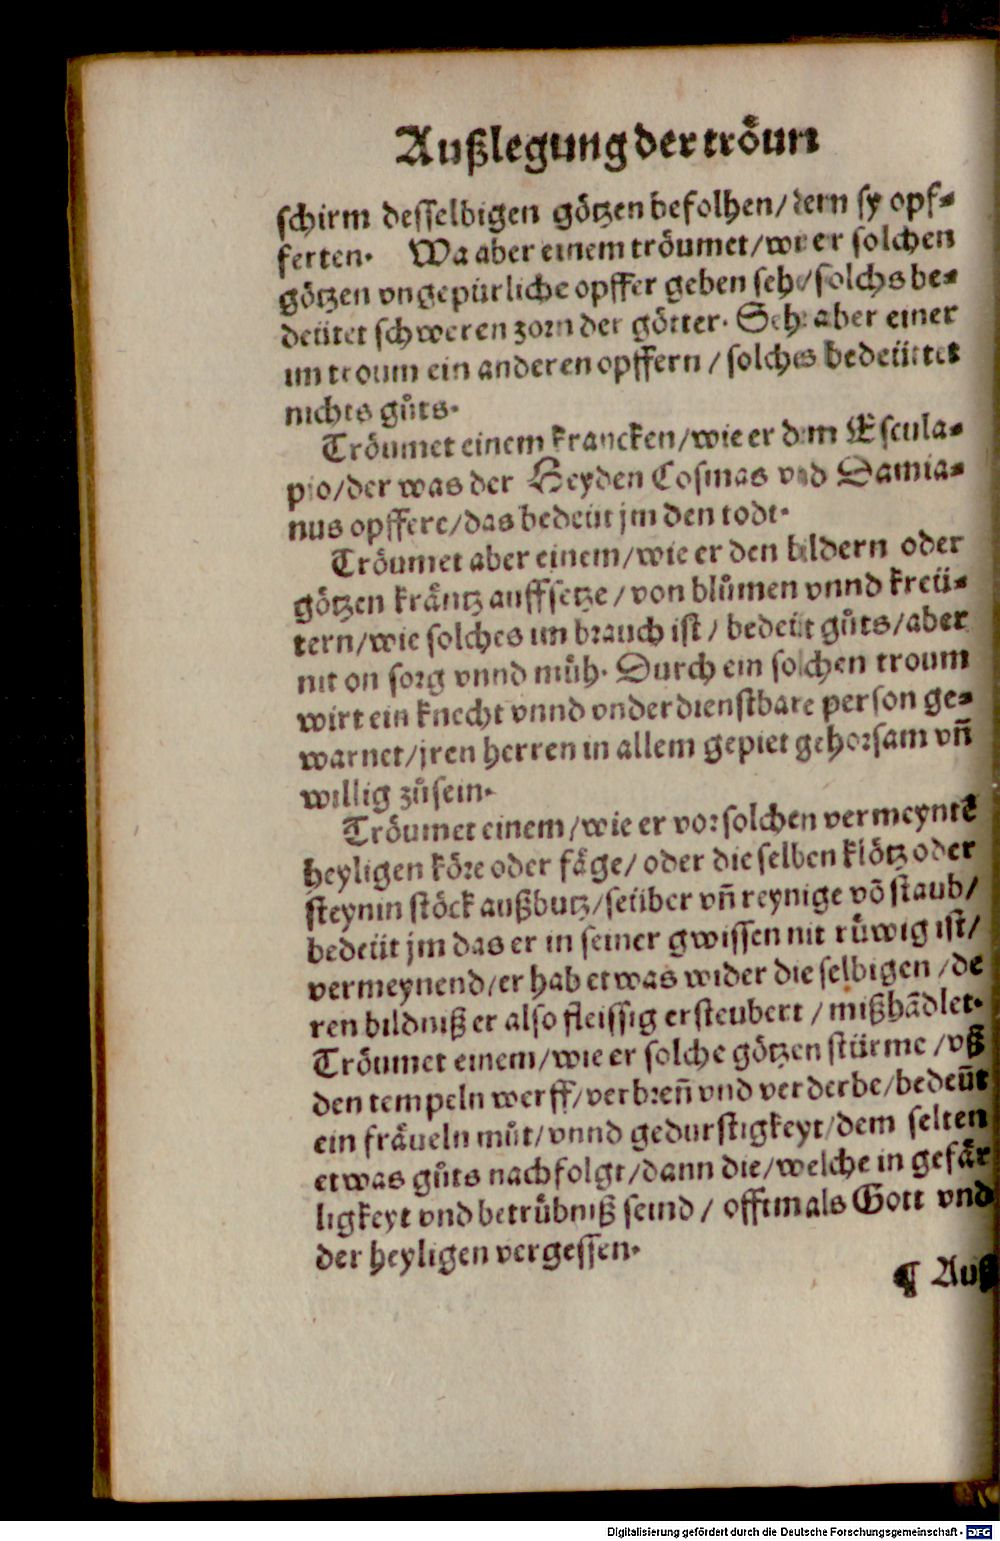 Außlegung der tröun
schirm desselbigen götzen befolhen/ dem sy opf-
ferten. Wa aber einem tröumet/wie er solchen
götzen vngepürliche opffer geben sehe/solchs be-
deütet schweren zorn der götter. Sehe aber einer
im troum ein anderen opffern / solches bedeüttet
nichts gůts.
Tröumet einem krancken/wie er dem Escula-
pio/der was der Heyden Cosmas vnd Damia-
nus opffere/das bedeüt jm den todt.
Tröumet aber einem/wie er den bildern oder
götzen kräntz auffsetze / von blůmen vnnd kreü-
tern/wie solches im brauch ist / bedeüt gůts/aber
nit on sorg vnnd müh. Durch ein solchen troum
wirt ein knecht vnnd vnderdienstbare person ge-
warnet/jren herren in allem gepiet gehorsam vñ
willig zůsein.
Tröumet einem/wie er vor solchen vermeyntē
heyligen köre oder fäge/ oder die selben klötz oder
steynin stöck außbutz/seüber vñ reynige vō staub/
bedeüt jm das er in seiner gwissen nit rüwig ist/
vermeynend/er hab etwas wider die selbigen /de
ren bildniß er also fleissig ersteubert / mißhādlet.
Tröumet einem/wie er solche götzen stürme /vß
den tempeln werff/verbreñ vnd verderbe/bedeüt
ein fräueln můt/vnnd gedurstigkeyt/dem selten
etwas gůts nachfolgt/dann die/welche in gefär
ligkeyt vnd betrübniß seind / offtmals Gott vnd
der heyligen vergessen.
¶ Auß
Digitalisierung gefördert durch die Deutsche Forschungsgemeinschaft - DFG